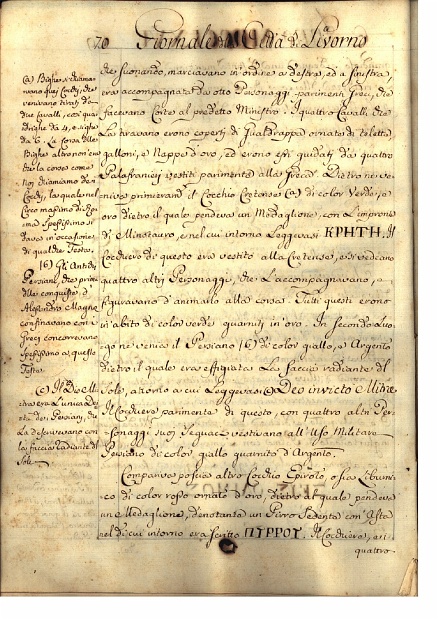 70 Giornale della Città di Livorno
che suonando, marciavano in ordine a destra, ed a sinistra,
era accompagnata da otto Personaggi parimenti Greci, che
facevano Corte al predetto Ministro. I quattro Cavalli, che
La tiravano erono coperti di Gualdrappa ornata di teletta
galloni, e Nappe d'oro, ed erono essi guidati da quattro
Palafranieri vestiti parimenti alla Greca. Dietro ne ve-
niva primieramd. il Cocchio Cretense (a) di color Verde, e
oro dietro il quale pendeva un Medaglione, con L'impronto
di Minotauro, e nel cui intorno Leggevasi ΚΡΗΤΗ. Il
Cocchiero di questo era vestito alla Cretense, e si vedeano
quattro altri Personaggi, che L'accompagnavano, e
figuravano d'animarlo alla corsa. Tutti questi erono
in abito di color verde guarniti in oro. In secondo Luo-
go ne venica il Persiano (b) di color giallo, e Argento
dietro il quale era effigiata La faccia radiante del
Sole, attorno a cui Leggevasi (c) Deo invicto Mitræ
Il Cocchiero parimenta di questo, con quattro altri Per-
sonaggi suoi seguaci vestivano all'Uso Militare
Persiano di color giallo guarnito d'Argento.
Compariva poscia altro Cocchio Epiroto, o sia Liburni-
co di color rosso ornato d'oro, dietro al quale pendeva
un Medaglione, denotante un Pirro Sedente con Asta
nel di cui intorno era scritto ΠΥΡΡΟΥ. Il Cocchiero, e i
quattro
(a) Bighe si chiama-
vano quei Cocchi, che
venivano tirati da
due cavalli, così qua-
drighe da 4, e sighe
da 6. La corsa delle
Bighe altro non era
che la corsa come
Noi chiamiamo de'
Cocchi, la quale nel
Circo massimo di Ro-
ma spessissimo si
dava in occasione
di qualche Festa.
(b) Gli Antichi
Persiani, che prima
delle conquiste d'
Alesandro Magno
confinavano con i
Greci concorrevano
spessissimo a queste
Feste.
(c) Il Dio Mi-
tra era L'unica Dei-
tà de' Persiani, che
La descrivevano con
la faccia radiante di
Sole.